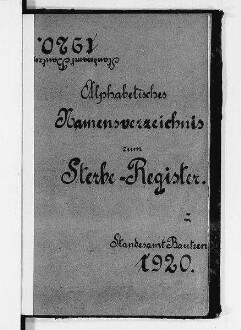 1920.
Standesamt Bautzen
Alphabetisches
Namensverzeichnis
zum
Sterbe-Register.
Standesamt Bautzen
1920.